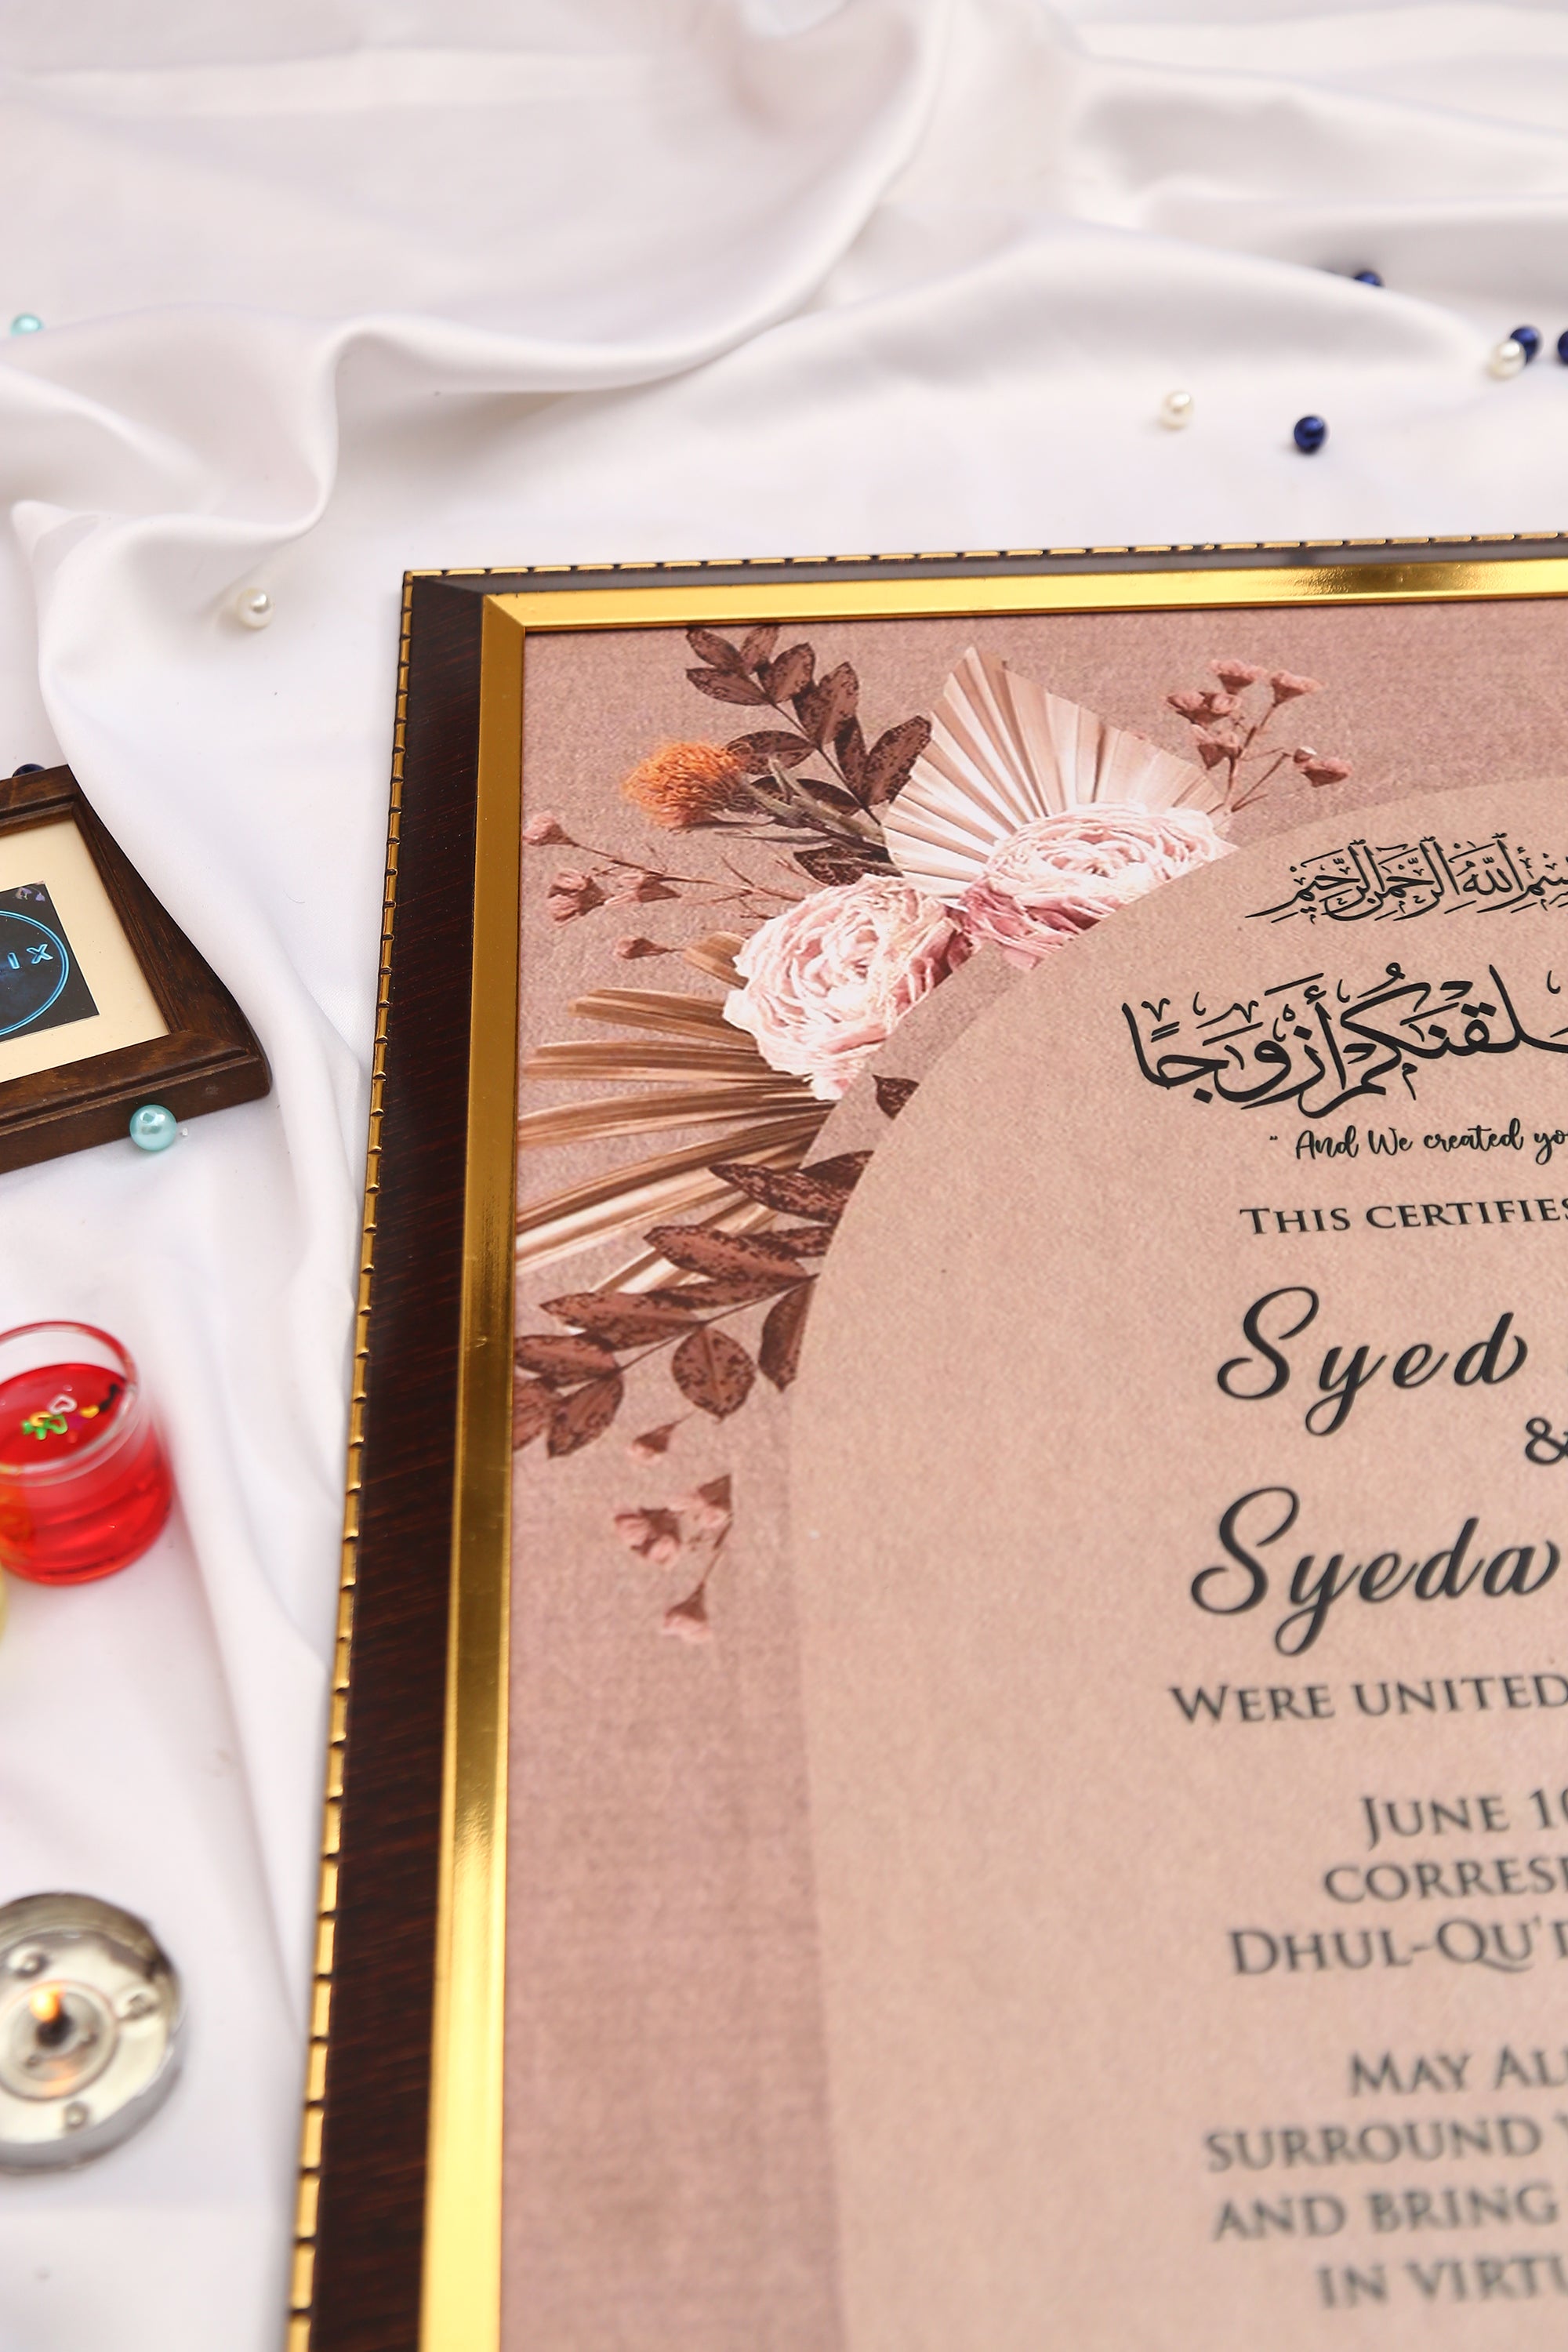 بسم الله الرحمن الرحيم
خلقنكم أزوجا
" And We created yo
THIS CERTIFIES
Syed
&
Syeda
WERE UNITED
JUNE 10
CORRESP
DHUL-QU'D
MAY ALL
SURROUND Y
AND BRING
IN VIRTU
IX